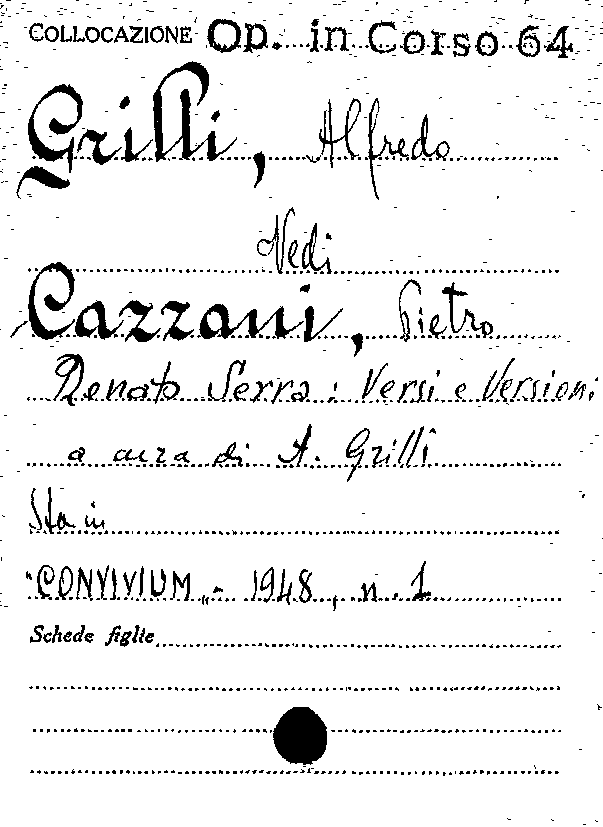 COLLOCAZIONE Op. in Corso 64
Grilli, Alfredo
Vedi
Cazzani, Pietro
Renato Serra: Versi e Versioni
a cura di A. Grilli
Sta in
"CONVIVIUM„ - 1948, n. 1
Schede figlie